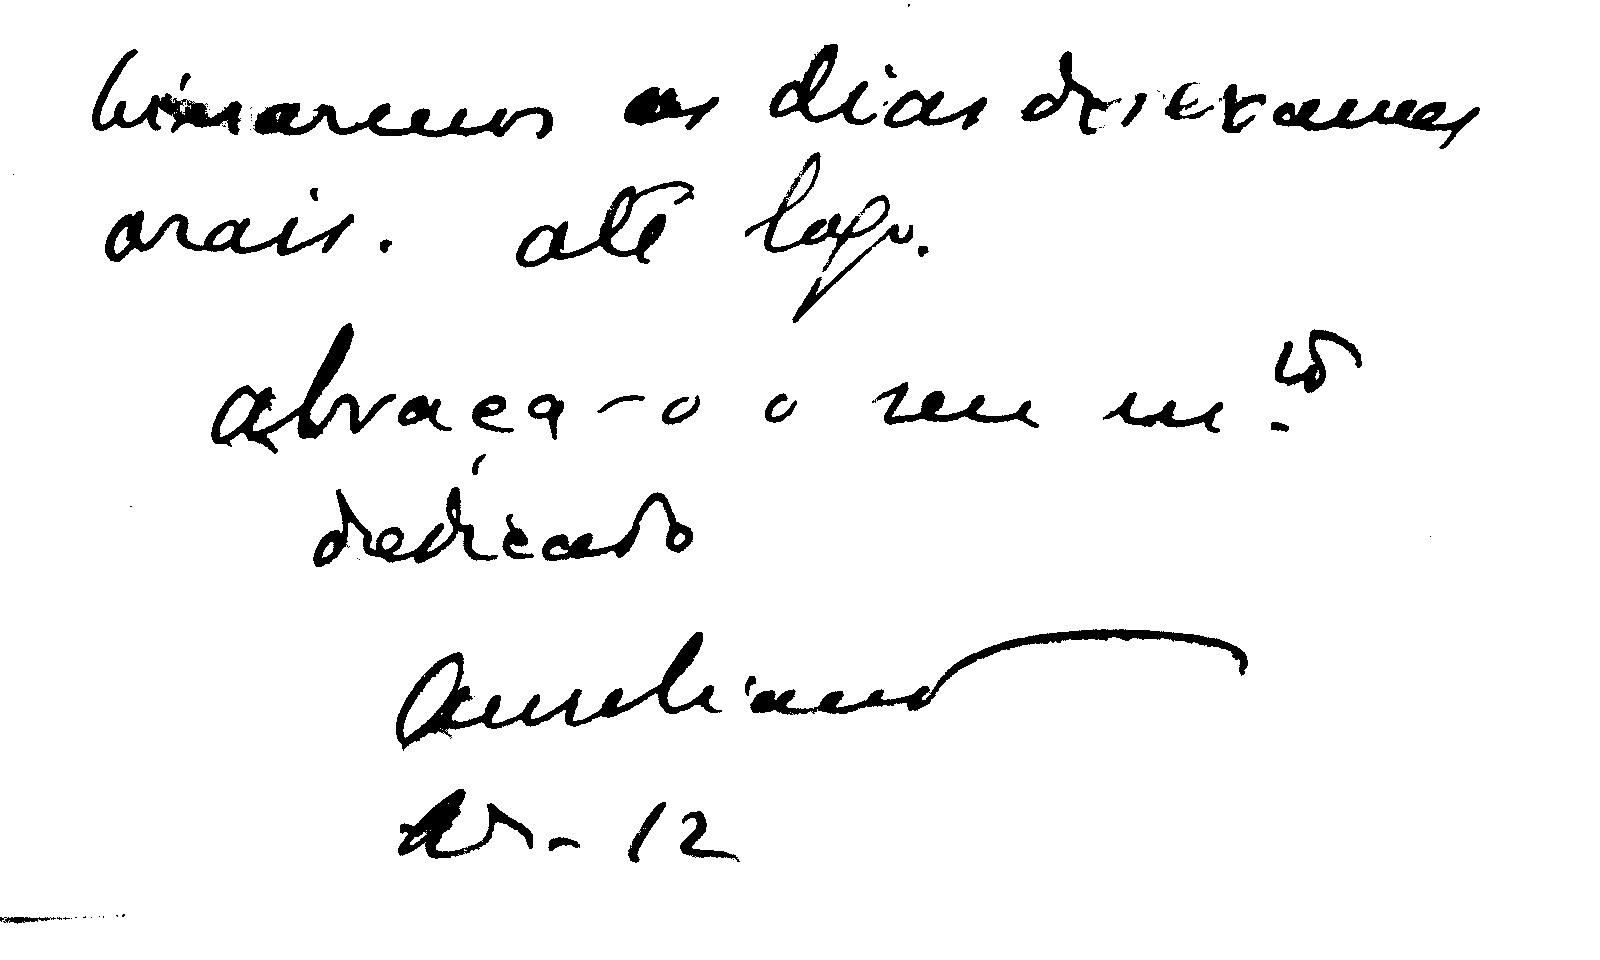 binaremos os dias dos exames
orais. até logo.
abraça-o o seu m.to
dedicado
Aureliano